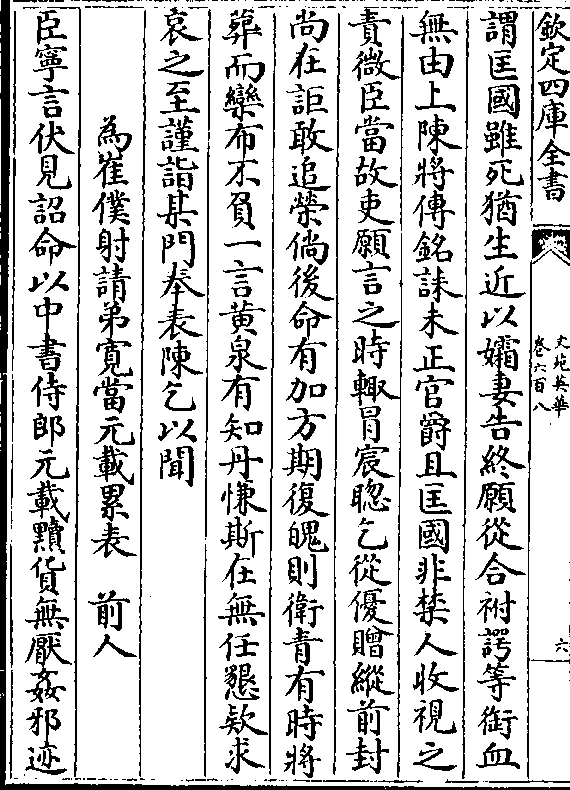 欽定四庫全書
文苑英華
卷六百八
六
謂匡國雖死猶生近以孀妻告終願從合祔諤等銜血
無由上陳將傳銘誄未正官爵且匡國非禁人收視之
責微臣當故吏願言之時輙冒宸聦乞從優贈縱前封
尚在詎敢追榮倘後命有加方期復魄則衛青有時將
葬而欒布不負一言黄泉有知丹慊斯在無任懇欵求
哀之至謹詣某門奉表陳乞以聞
為崔僕射請弟寛當元載累表 前人
臣寧言伏見詔命以中書侍郎元載黷貨無厭姦邪迹